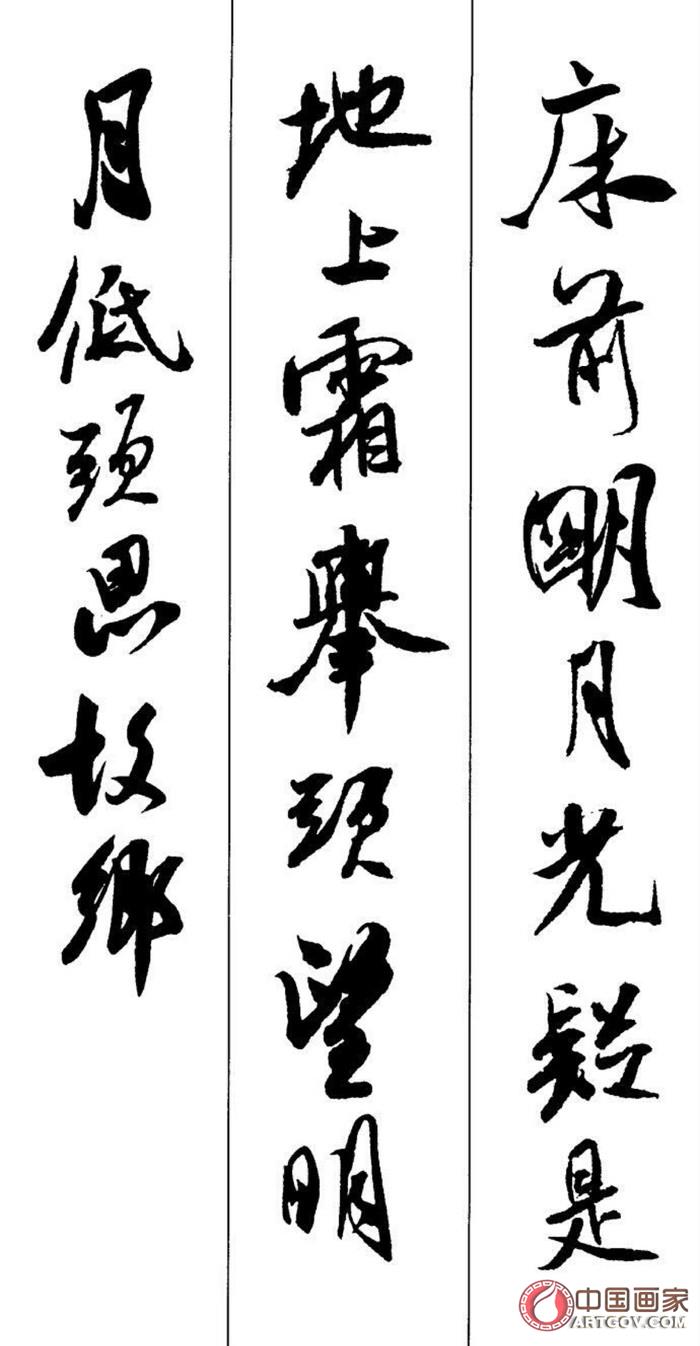 床前明月光疑是
地上霜舉頭望明
月低頭思故鄉
中国画家
ARTGOV.COM